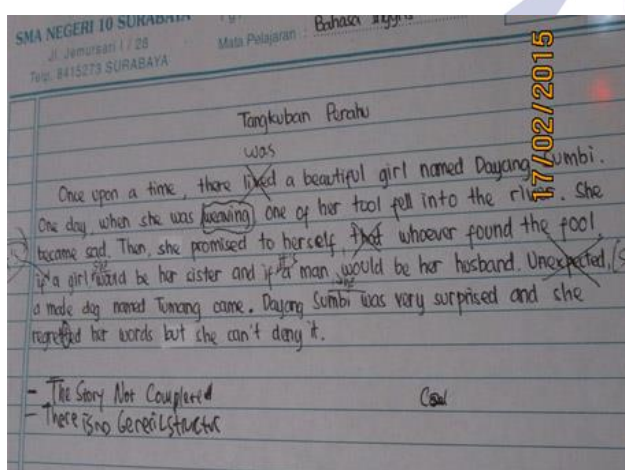 SMA NEGERI 10 SURABAYA
Jl. Jemursari I / 28
Telp. 8415273 SURABAYA
Mata Pelajaran : Bahasa Inggris
17/02/2015
Tangkuban Perahu
was
Once upon a time, there lived a beautiful girl named Dayang Sumbi.
One day, when she was weaving one of her tool fell into the river. She
became sad. Then, she promised to herself, that whoever found the tool
if a girl would be her sister and if a man would be her husband. Unexpected,
a male dog named Tumang came. Dayang Sumbi was very surprised and she
regretted her words but she can't deny it.
- The Story Not Completed
- There is no